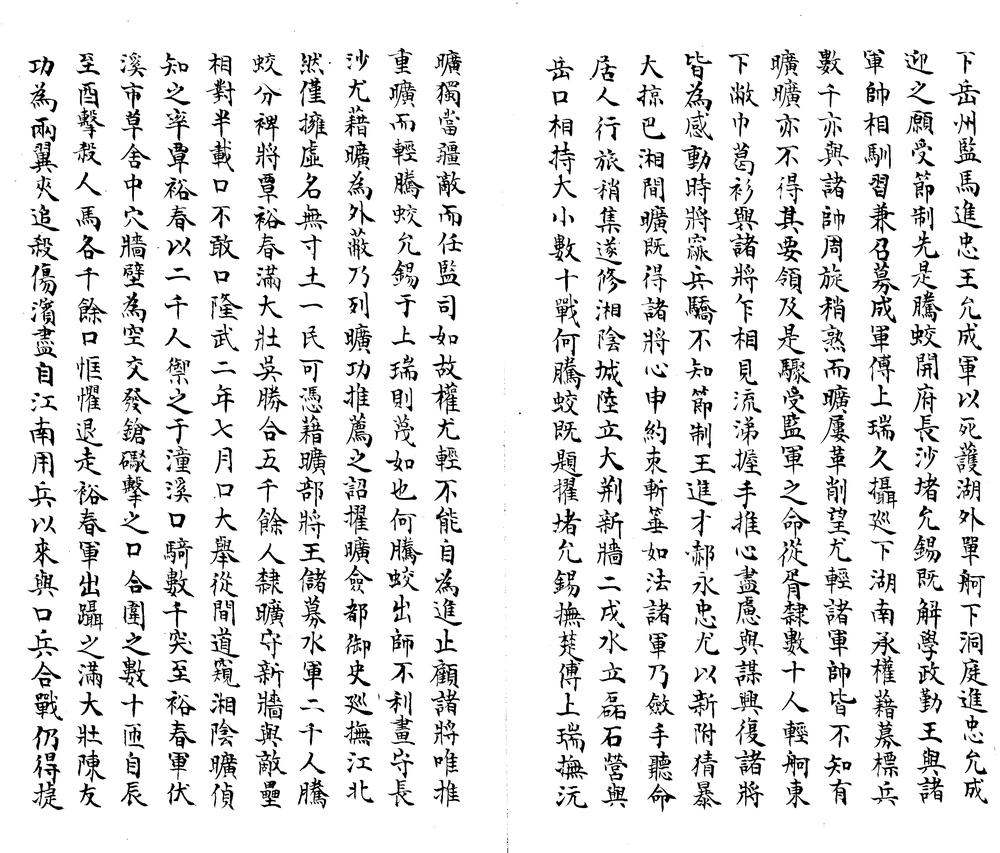 下岳州監馬進忠王允成軍以死護湖外單舸下洞庭進忠允成
迎之願受節制先是騰蛟開府長沙堵允錫既解學政勤王與諸
軍帥相馴習兼召募成軍傅上瑞久攝巡下湖南承權藉募標兵
數千亦與諸帥周旋稍熟而曠屢革削望尤輕諸軍帥皆不知有
曠曠亦不得其要領及是驟受監軍之命從胥隸數十人輕舸東
下敝巾葛衫與諸將乍相見流涕握手推心盡慮與謀興復諸將
皆為感動時將窳兵驕不知節制王進才郝永忠尤以新附猜暴
大掠巴湘間曠既得諸將心申約束斬箠如法諸軍乃斂手聽命
居人行旅稍集遂修湘陰城陸立大荆新牆二戍水立磊石營與
岳口相持大小數十戰何騰蛟既題擢堵允錫撫楚傅上瑞撫沅
曠獨當疆敵而任監司如故權尤輕不能自為進止顧諸將唯推
重曠而輕騰蛟允錫于上瑞則蔑如也何騰蛟出師不利畫守長
沙尤藉曠為外蔽乃列曠功推薦之詔擢曠僉都御史巡撫江北
然僅擁虛名無寸土一民可憑藉曠部將王儲募水軍二千人騰
蛟分裨將覃裕春滿大壯吳勝合五千餘人隸曠守新牆與敵壘
相對半載口不敢口隆武二年七月口大舉從間道窺湘陰曠偵
知之率覃裕春以二千人禦之于潼溪口騎數千突至裕春軍伏
溪市草舍中穴牆壁為空交發鎗礮擊之口合圍之數十匝自辰
至酉擊殺人馬各千餘口恇懼退走裕春軍出躡之滿大壯陳友
功為兩翼夾追殺傷濱盡自江南用兵以來與口兵合戰仍得捷